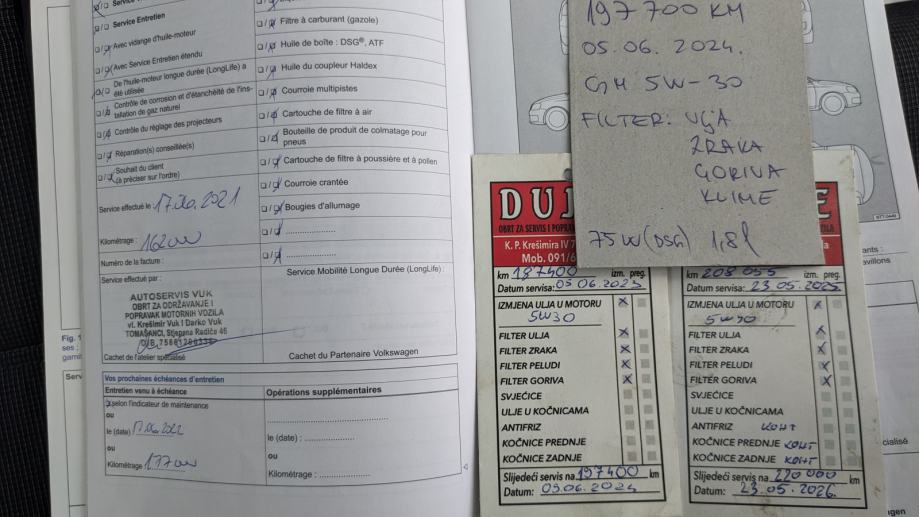 Service Entretien
Avec vidange d'huile-moteur
Avec Service Entretien étendu
De l'huile-moteur longue durée (LongLife) a
été utilisée
Contrôle de corrosion et d'étanchéité de l'ins-
tallation de gaz naturel
Contrôle du réglage des projecteurs
Réparation(s) conseillée(s)
Souhait du client
(à préciser sur l'ordre)
Service effectué le
Kilométrage :
Numéro de la facture :
Service effectué par :
AUTOSERVIS VUK
OBRT ZA ODRŽAVANJE I
POPRAVAK MOTORNIH VOZILA
vl. Krešimir Vuk i Darko Vuk
TOMAŠANCI, Stjepana Radića 46
Cachet de l'atelier spécialisé
Filtre à carburant (gazole)
Huile de boîte : DSG®, ATF
Huile du coupleur Haldex
Courroie multipistes
Cartouche de filtre à air
Bouteille de produit de colmatage pour
pneus
Cartouche de filtre à poussière et à pollen
Courroie crantée
Bougies d'allumage
Service Mobilité Longue Durée (LongLife) :
Cachet du Partenaire Volkswagen
Vos prochaines échéances d'entretien
Entretien venu à échéance
selon l'indicateur de maintenance
ou
le (date)
ou
Kilométrage
Opérations supplémentaires
le (date) :
ou
Kilométrage :
197 700 KM
05.06.2024.
GM 5W-30
FILTER: ULJA
ZRAKA
GORIVA
KLIME
75W (DSG) 1,8l
OBRT ZA SERVIS I POPRAV
K. P. Krešimira IV 7
Mob. 091/6
km izm. preg.
Datum servisa:
IZMJENA ULJA U MOTORU X
5W30
FILTER ULJA X
FILTER ZRAKA X
FILTER PELUDI X
FILTER GORIVA X
SVJEĆICE
ULJE U KOČNICAMA
ANTIFRIZ
KOČNICE PREDNJE
KOČNICE ZADNJE
Slijedeći servis na 197400 km
Datum:
km 208 055 izm. preg.
Datum servisa: 23.05.2025
IZMJENA ULJA U MOTORU X
5W30
FILTER ULJA X
FILTER ZRAKA X
FILTER PELUDI X
FILTER GORIVA X
SVJEĆICE
ULJE U KOČNICAMA
ANTIFRIZ KONT
KOČNICE PREDNJE KONT
KOČNICE ZADNJE KONT
Slijedeći servis na 220 000 km
Datum: 23.05.2026.